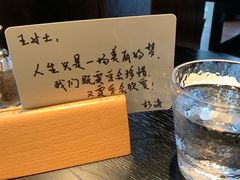 王女士：
人生只是一场美丽的梦，
我们既要学会珍惜，
又要学会欣赏！
杉海